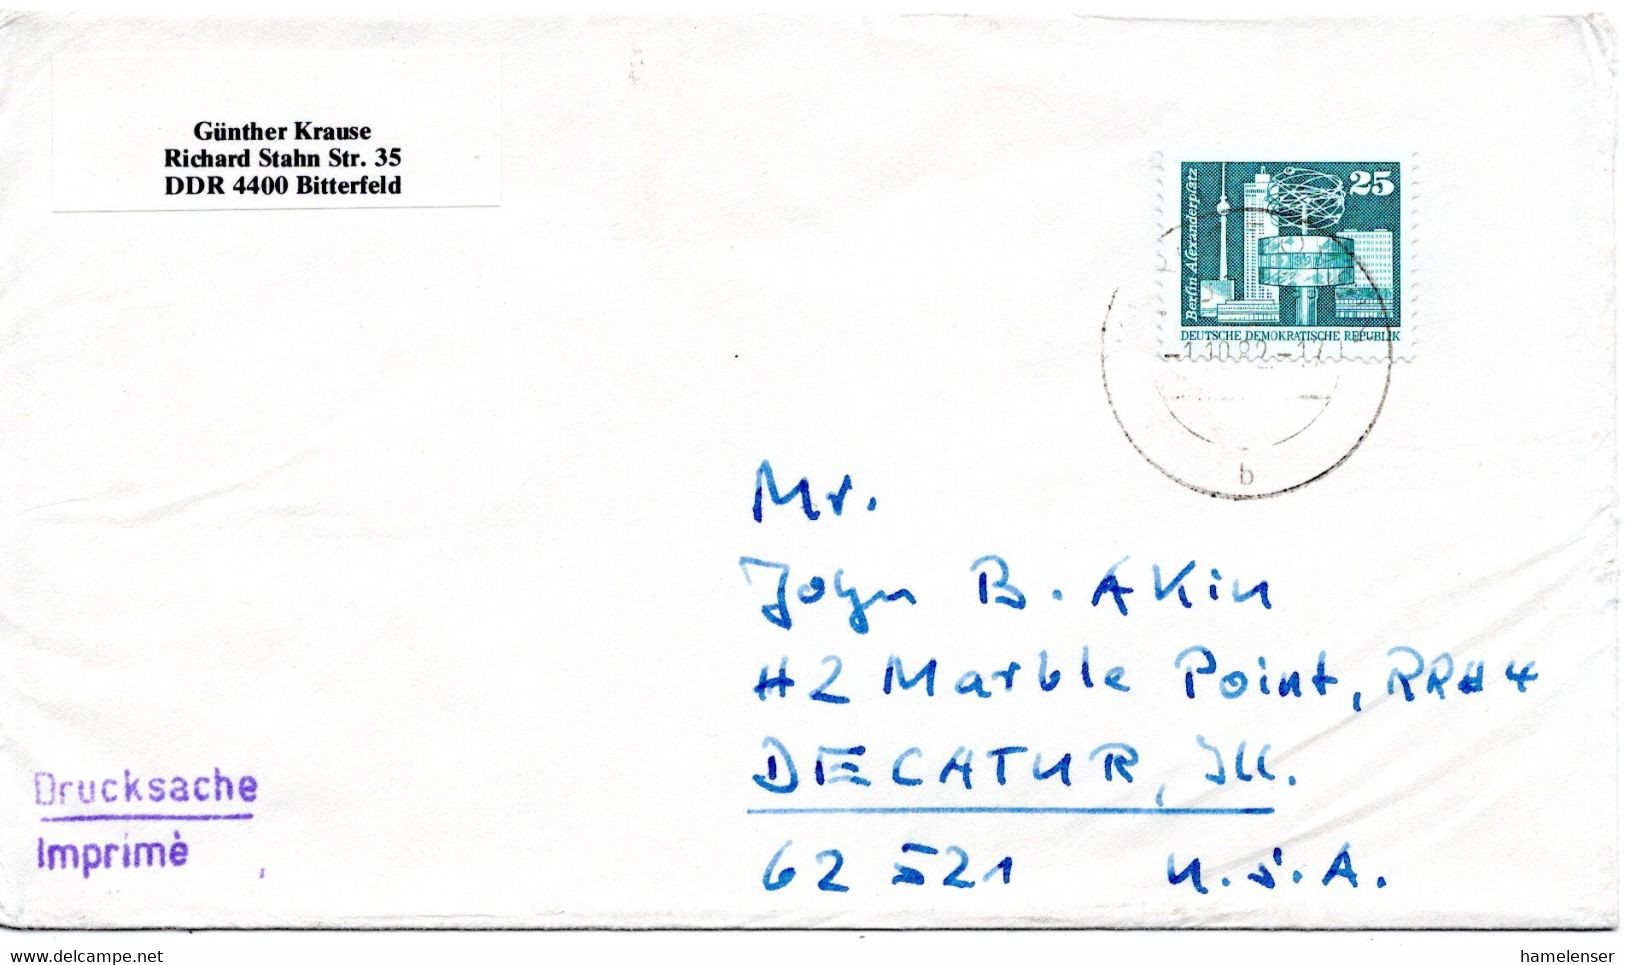 Günther Krause
Richard Stahn Str. 35
DDR 4400 Bitterfeld
25
Berlin, Alexanderplatz
DEUTSCHE DEMOKRATISCHE REPUBLIK
-1.10.82-17
b
Mr.
John B. Akin
#2 Marble Point, RR#4
DECATUR, Ill.
62521 U.S.A.
Drucksache
Imprimè
www.delcampe.net
hamelenser